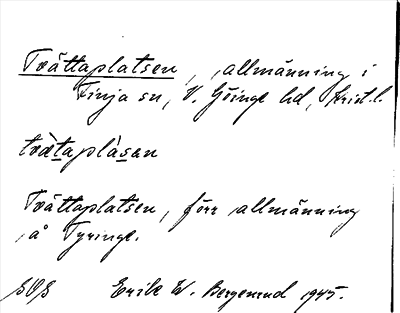 Tvättaplatsen, allmänning i
Finja sn, V. Göinge hd, Krist. l.
tvätaplàsan
Tvättaplatsen, förr allmänning
å Tyringe.
Erik W. Bergenrud 1945.